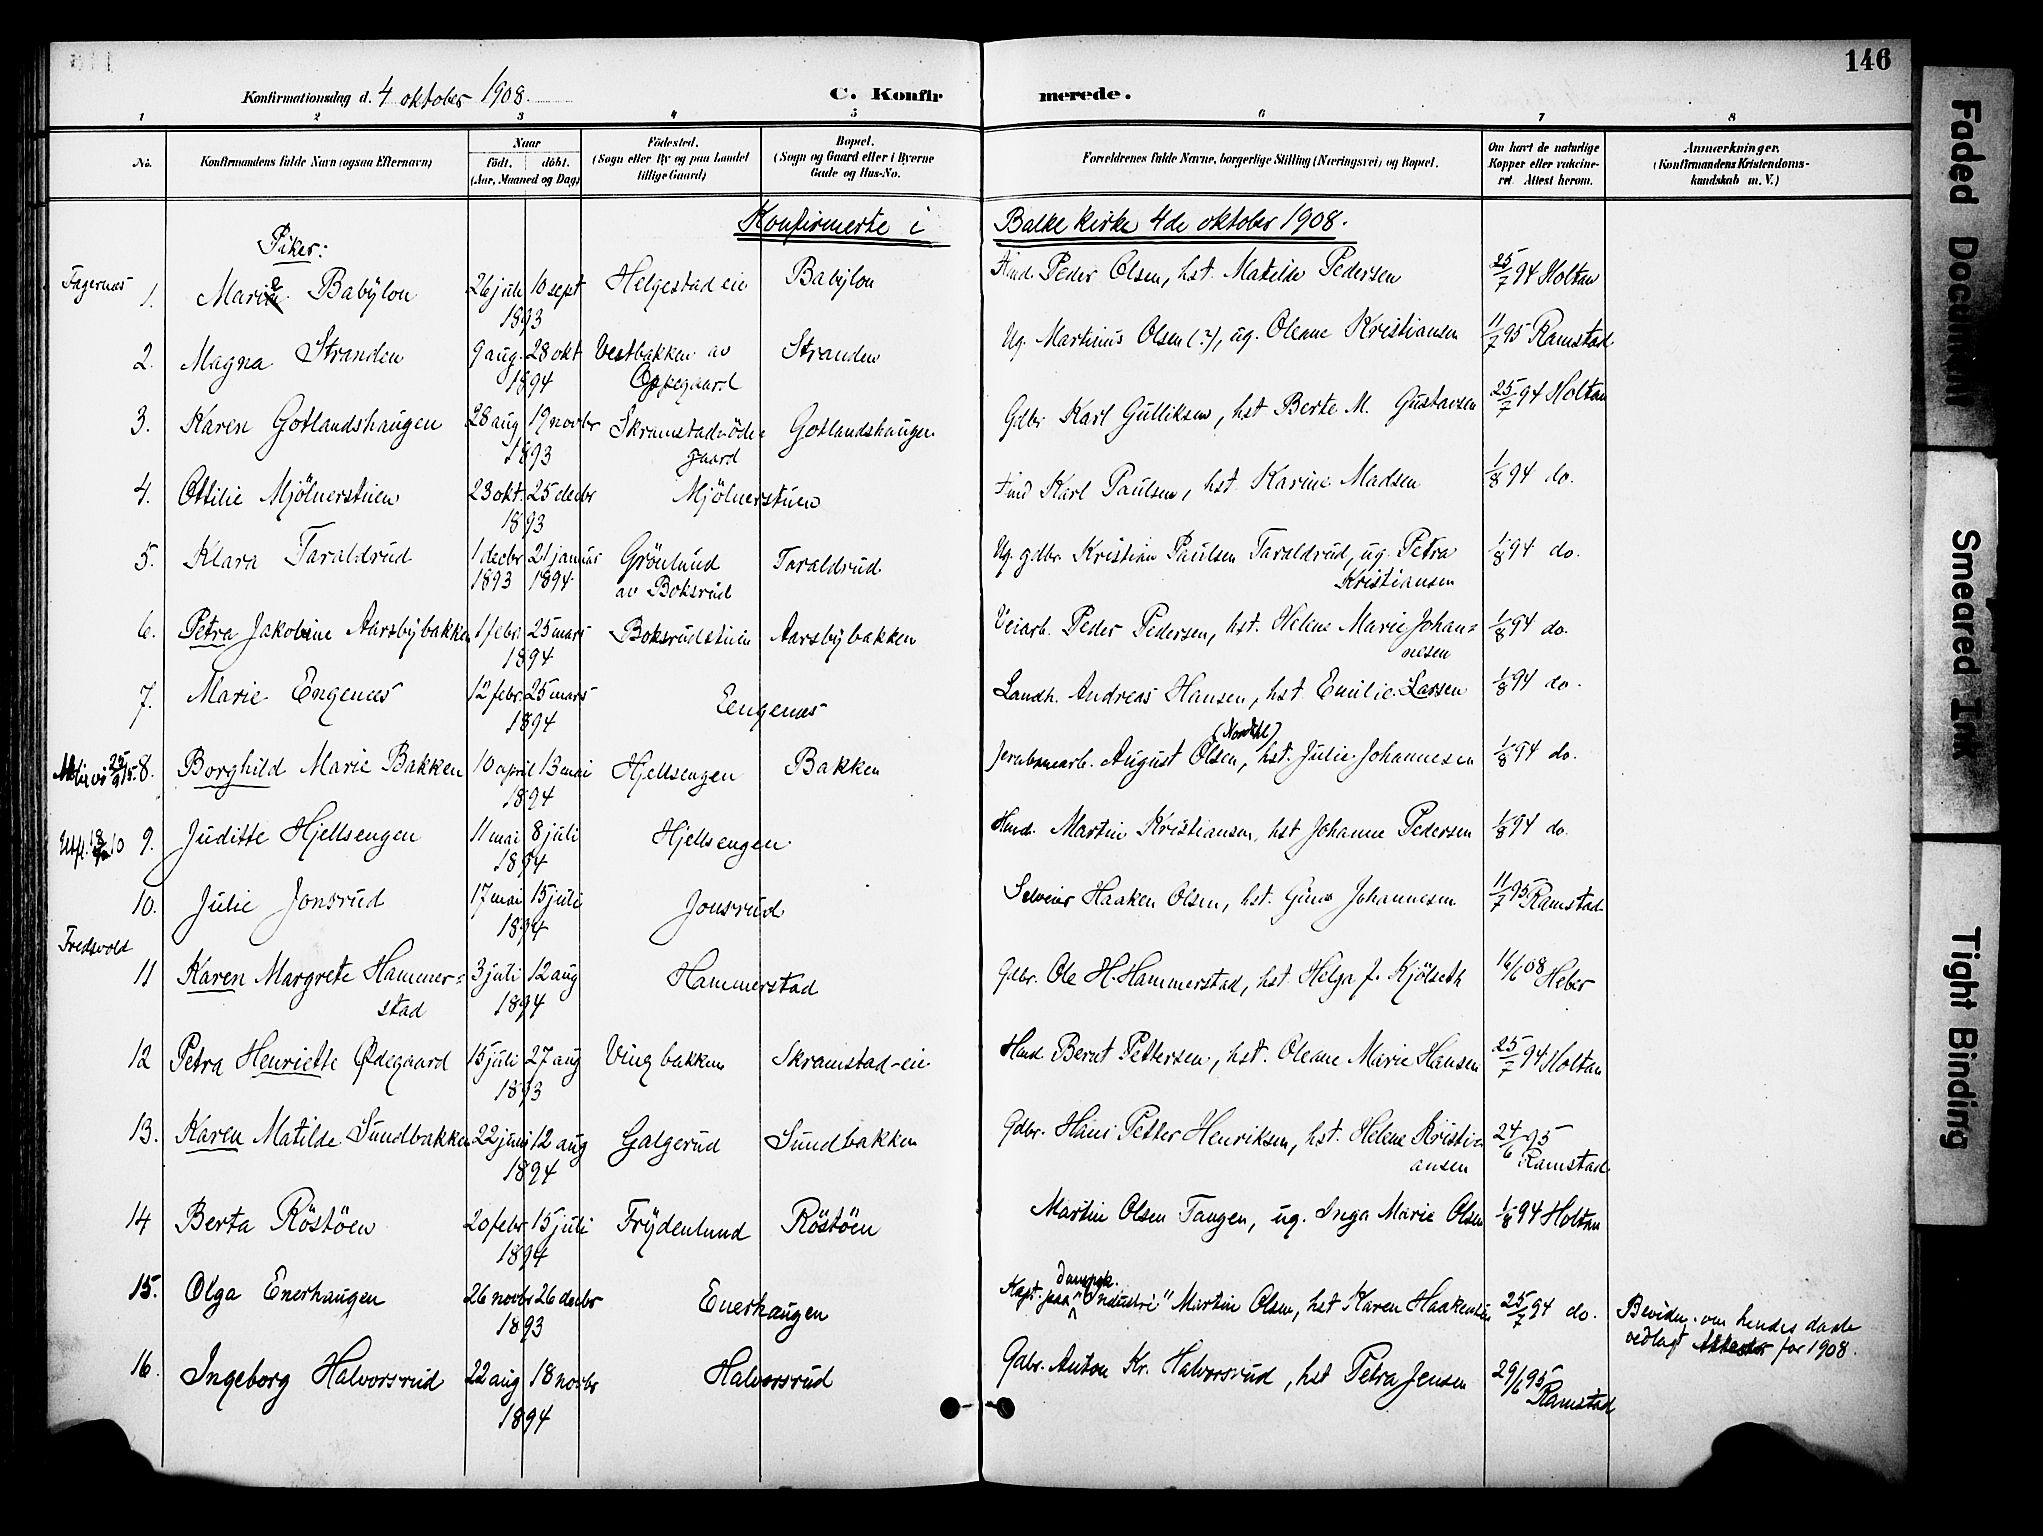 146
Konfirmationsdag d. 4 oktober 1908.
C. Konfirmerede.
1 2 3 4 5 6 7 8
No.
Konfirmandens fulde Navn (ogsaa Efternavn)
Naar
födt. döbt.
(Aar, Maaned og Dag)
Födested.
(Sogn eller By og paa Landet
tillige Gaard)
Bopæl.
(Sogn og Gaard eller i Byerne
Gade og Hus-No.
Forældrenes fulde Navne, borgerlige Stilling (Næringsvei) og Bopæl.
Om havt de naturlige
Kopper eller vakcine-
ret. Attest herom.
Anmærkninger.
(Konfirmandens Kristendoms-
kundskab m. V.)
Konfirmerte i Balke kirke 4de oktober 1908.
Piker:
Fagernes
1. Marie Babylon 26 juli 10 sept Helgestad eie Babylon Peder Olsen, hst. Matilde Pedersen 25/7 94 Holtan
1893
2. Magna Stranden 9 aug. 28 okt Vestbakken av Stranden Ug. Martinius Olsen (?), ug. Oleane Kristiansen 11/7 95 Ramstad
1894 Oppegaard
3. Karen Gotlandshaugen 28 aug 19 novbr Skramstad-öde- Gotlandshaugen Gdbr Karl Gulliksen, hst Berte M. Gustavsen 25/7 94 Holtan
1893 gaard
4. Ottilie Mjölnerstuen 23 okt. 25 decbr Mjölnerstuen Karl Paulsen, hst. Karine Madsen 1/8 94 do.
1893
5. Klara Taraldrud 1 decbr 21 januar Grönlund Taraldrud Ug. gdbr. Kristian Paulsen Taraldrud, ug. Petra 1/8 94 do.
1893 1894 av Boksrud Kristiansen
6. Petra Jakobine Aarsbybakken 1 febr. 25 mars Boksrudstuen Aarsbybakken Veiarb. Peder Pedersen, hst. Helene Marie Johan- 1/8 94 do.
1894 nesen
7. Marie Engenes 12 febr. 25 mars Engenes Landh. Andreas Hansen, hst. Emilie Larsen 1/8 94 do.
1894
8. Borghild Marie Bakken 10 april 13 mai Hjellsengen Bakken Jernbanearb. August Olsen, hst. Julie Johannesen 1/8 94 do.
1894
9. Juditte Hjellsengen 11 mai 8 juli Hjellsengen Hmd. Martin Kristiansen, hst Johanne Pedersen 1/8 94 do.
1894
10. Julie Jonsrud 17 mai 15 juli Jonsrud Selveier Haaken Olsen, hst. Gina Johannesen 11/7 95 Ramstad
1894
Fredsvold
11 Karen Margrete Hammer- 3 juli 12 aug Hammerstad Gdbr. Ole H. Hammerstad, hst Helga J. Kjölseth 16/6 08 Heber
stad 1894
12 Petra Henriette Ødegaard 15 juli 27 aug Vingbakken Skramstad-eie Hmd. Bernt Pettersen, hst. Oleane Marie Hansen 25/7 94 Holtan
1893
13. Karen Matilde Sundbakken 22 juni 12 aug Galgerud Sundbakken Gdbr. Hans Petter Henriksen, hst. Helene Kristi- 24/6 95
1894 ansen Ramstad
14 Berta Röstöen 20 febr. 15 juli Frydenlund Röstöen Martin Olsen Tangen, ug. Inga Marie Olsen 1/8 94 Holtan
1894
15. Olga Enerhaugen 26 novbr 26 decbr Enerhaugen Kapt. paa dampsk. "Industri" Martin Olsen, hst Karen Haakensen 25/7 94 do. Beviden. om hendes daab
1893 vedlagt for 1908.
16. Ingeborg Halvorsrud 22 aug 18 novbr Halvorsrud Gdbr. Anton Kr. Halvorsrud, hst Petra Jensen 29/6 95
1894 Ramstad
Faded Document
Smeared Ink
Tight Binding